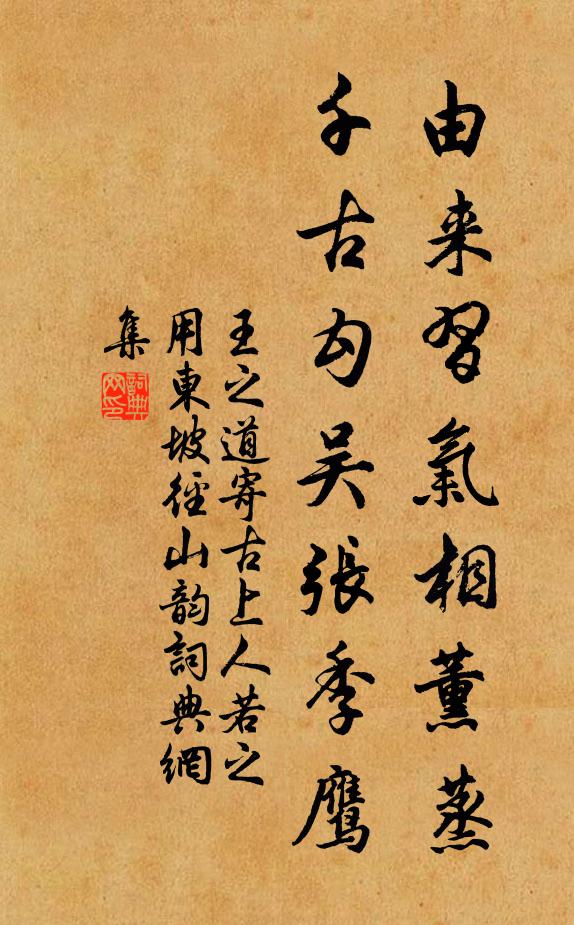 由来習氣相薰蒸
千古勾吴張季鹰
王之道寄古上人若之
用東坡徑山韵詞典網
集
詞典
网印